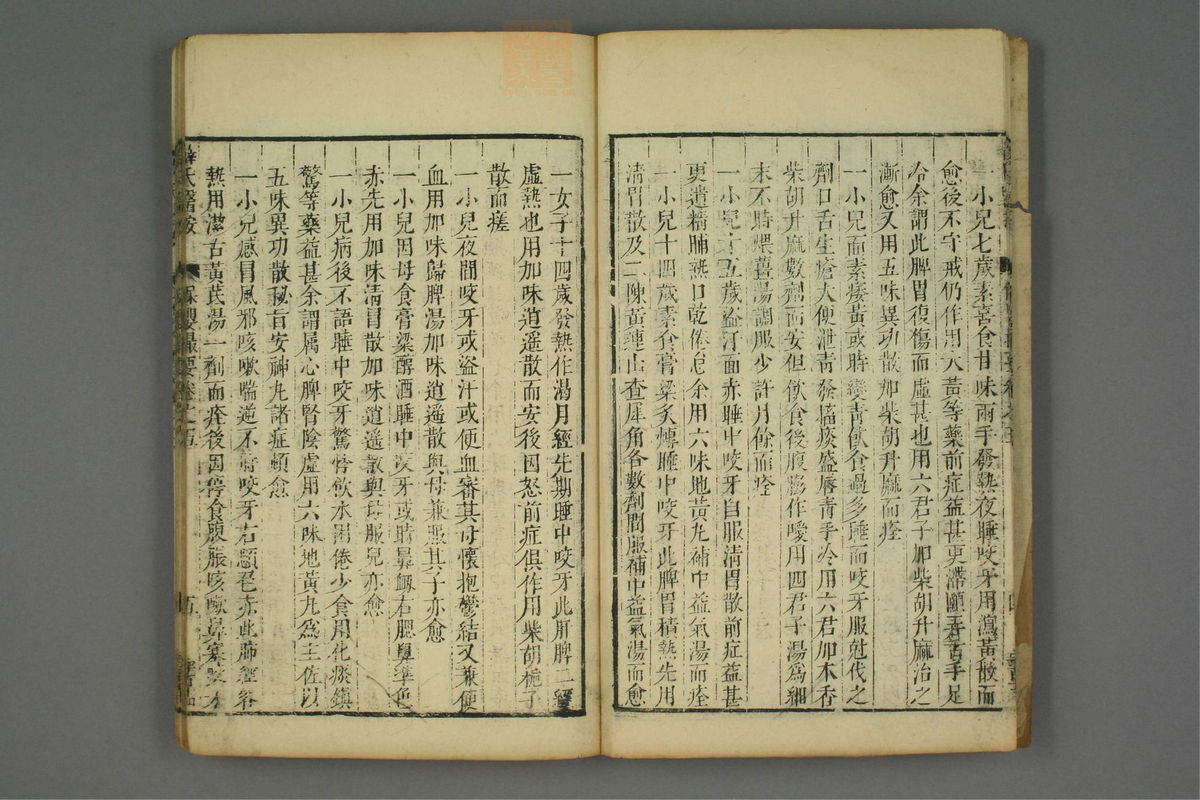 一小兒七歲素喜食甘味兩手發熱夜睡咬牙用瀉黃散而
愈後不守戒仍作用大黃等藥前症益甚更滯頤弄舌手足
冷余謂此脾胃復傷而虛甚也用六君子加柴胡升麻治之
漸愈又用五味異功散加柴胡升麻而痊
一小兒面素痿黃或時變青飲食過多睡而咬牙服尅伐之
劑口舌生瘡大便泄青發搐痰盛唇青手冷用六君加木香
柴胡升麻數劑而安但飲食後腹膨作噯用四君子湯為細
末不時煨薑湯調服少許月餘而痊
一小兒十五歲盜汗面赤睡中咬牙自服清胃散前症益甚
更遺精晡熱口乾倦怠余用六味地黃丸補中益氣湯而痊
一小兒十四歲素食膏粱炙煿睡中咬牙此脾胃積熱先用
清胃散及二陳黃連山查犀角各數劑間服補中益氣湯而愈
一女子十四歲發熱作渴月經先期睡中咬牙此肝脾二經
虛熱也用加味逍遥散而安後因怒前症俱作用柴胡梔子
散而瘥
一小兒夜間咬牙或盜汗或便血審其母懷抱鬱結又兼便
血用加味歸脾湯加味逍遥散與母兼服其子亦愈
一小兒因母食膏粱醇酒睡中咬牙或時鼻衄右腮鼻準色
赤先用加味清胃散加味逍遥散與母服兒亦愈
一小兒病後不語睡中咬牙驚悸飲水困倦少食用化痰鎮
驚等藥益甚余謂屬心脾腎陰虛用六味地黃丸為主佐以
五味異功散秘旨安神丸諸症頓愈
一小兒感冒風邪咳嗽喘逆不時咬牙右顋色赤此肺經客
熱用潔古黃芪湯一劑而痊後因停食腹脹咳嗽鼻塞
薛氏醫按
保嬰撮要卷之五